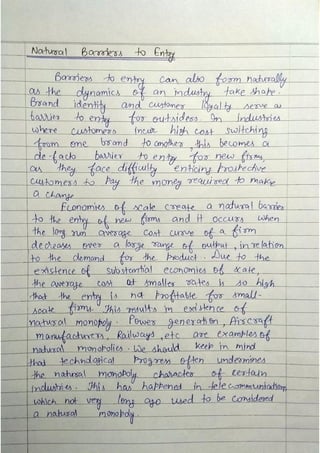 Natural Barriers to Entry
Barriers to entry can also form naturally
as the dynamics of an industry take shape.
Brand identity and customer loyalty serve as
barrier to entry for outsiders. In Industries
where customers incur high cost switching
from one brand to another, this becomes a
de-facto barrier to entry for new firms,
as they face difficulty enticing prospective
customers to Pay the money required to make
a change.
Economies of scale create a natural barrier
to the entry of new firms and it occurs when
the long run average cost curve of a firm
decreases over a large range of output, in relation
to the demand for the product. Due to the
existence of substantial economies of scale,
the average cost at smaller rates is so high
that the entry is not profitable for small-
scale firms. This results in existence of
natural monopoly. Power generation, Aircraft
manufacturers, Railways, etc are examples of
natural monopolies. We should keep in mind
that technological Progress often undermines
the natural monopoly character of certain
industries. This has happened in telecommunication,
which not very long ago used to be considered
a natural monopoly.